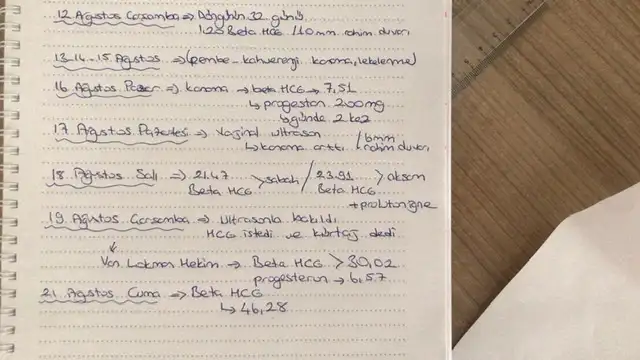 12 Ağustos Çarşamba ⇒ Döngünün 32. günü
1.20 Beta HCG /10 mm. rahim duvarı
13-14-15 Ağustos ⇒ (pembe-kahverengi kanama, lekelenme)
16 Ağustos Pazar ⇒ kanama → beta HCG → 7,51
↳ progestan 200mg
↳ günde 2 kez
17 Ağustos Pazartesi ⇒ Vajinal ultrason / 6mm
↳ kanama arttı. / rahim duvarı
18 Ağustos Salı ⇒ 21.47 >sabah / 23.91 > akşam
Beta HCG Beta HCG
+proluton iğne
19 Ağustos Çarşamba ⇒ Ultrasonla bakıldı
HCG istedi ve kürtaj dedi
Van Lokman Hekim → Beta HCG > 30,02
progesteron → 6,57
21 Ağustos Cuma ⇒ Beta HCG
↳ 46,28